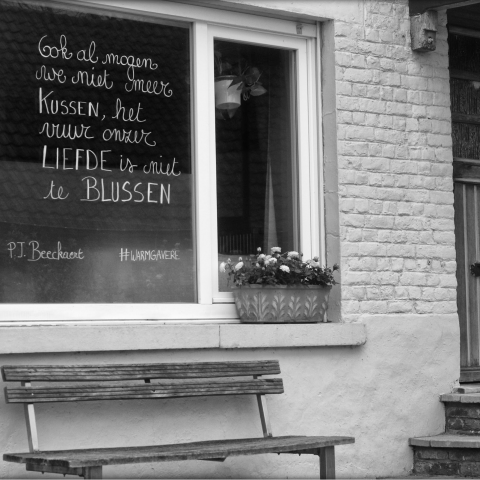 Ook al mogen
we niet meer
KUSSEN, het
vuur onzer
LIEFDE is niet
te BLUSSEN
P.J. Beeckaert
#WARMGAVERE